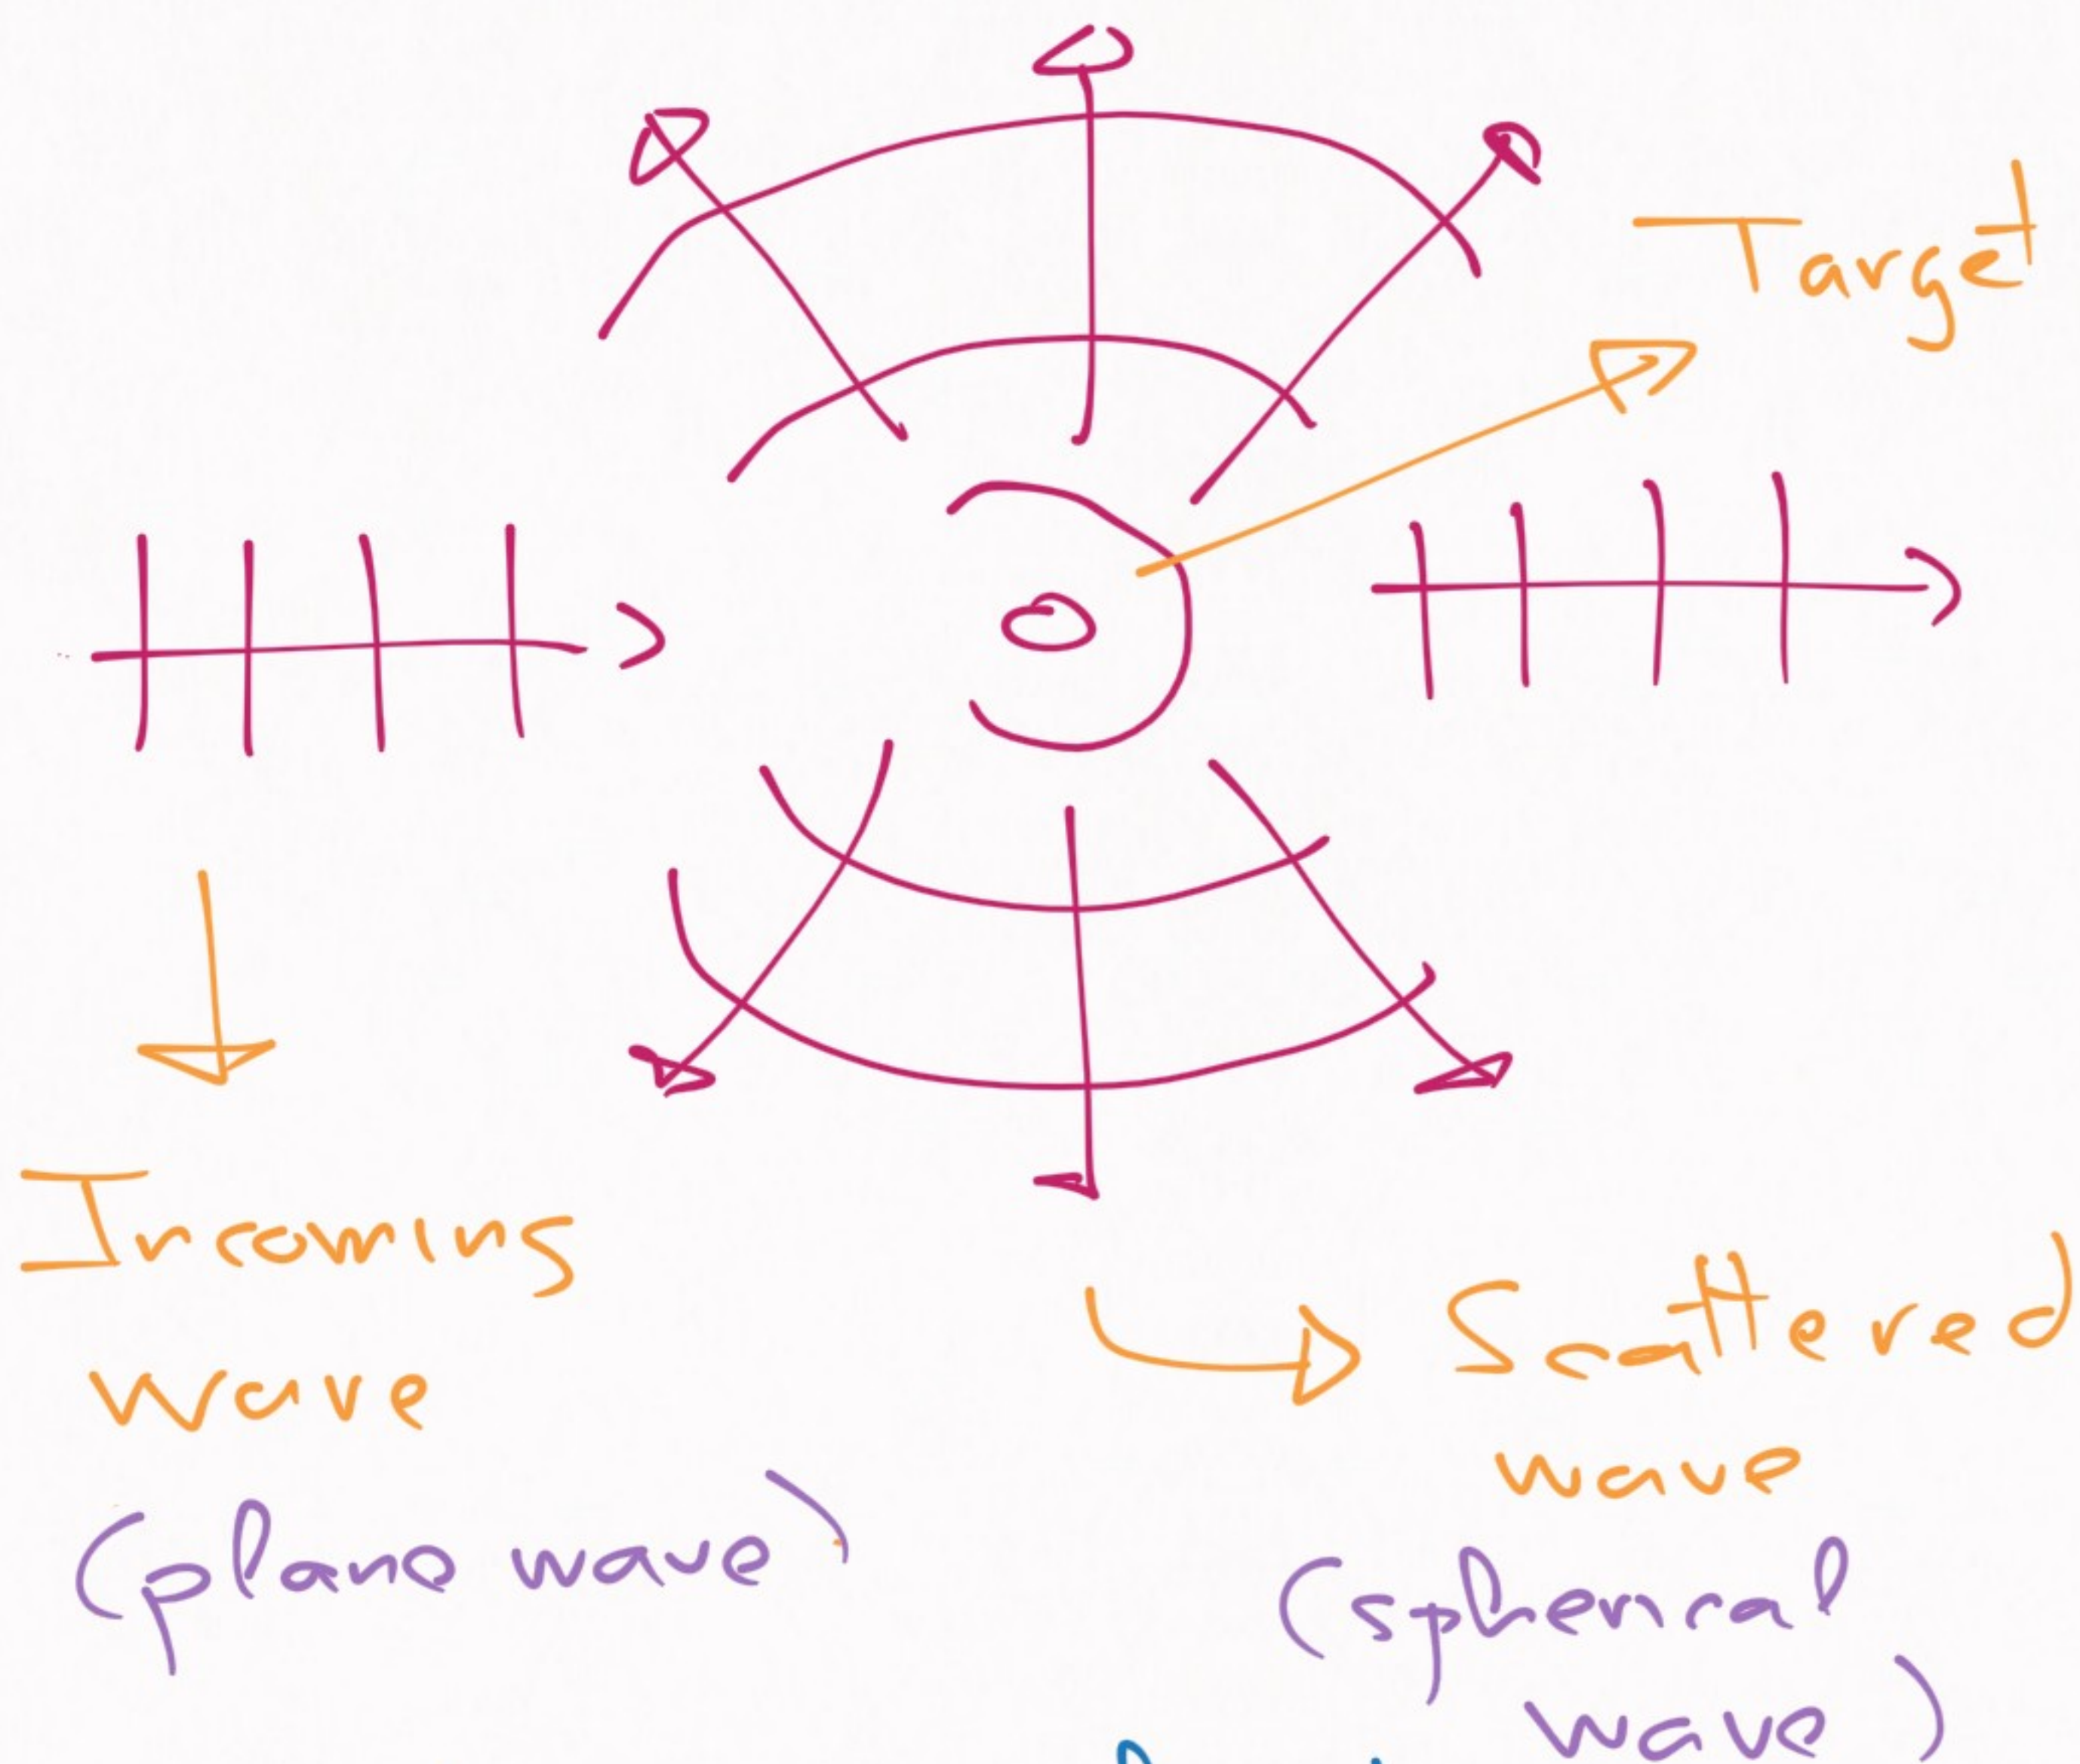 Target
Incoming
wave
(plane wave)
Scattered
wave
(spherical
wave)